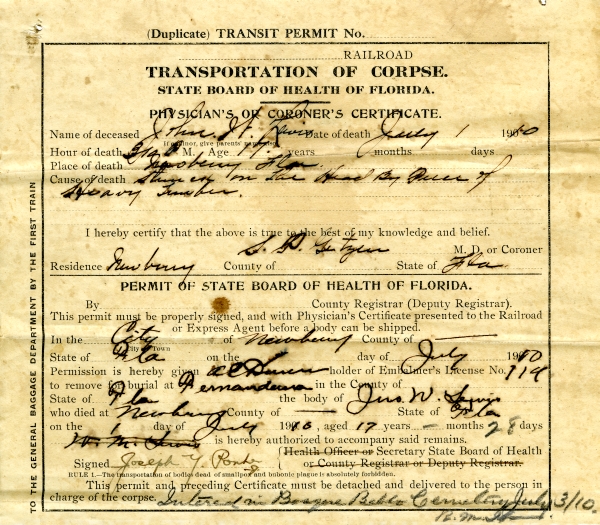 (Duplicate) TRANSIT PERMIT No.
RAILROAD
TRANSPORTATION OF CORPSE.
STATE BOARD OF HEALTH OF FLORIDA.
PHYSICIAN'S OR CORONER'S CERTIFICATE.
Name of deceased John W. Lewis Date of death July 1 1910
If minor, give parents' name
Hour of death M., Age 17 years months days
Place of death Newberry Fla
Cause of death Struck on the Head By Piece of
Heavy Timber.
I hereby certify that the above is true to the best of my knowledge and belief.
S. P. Getzen M. D. or Coroner
Residence Newberry County of State of Fla
PERMIT OF STATE BOARD OF HEALTH OF FLORIDA.
By County Registrar (Deputy Registrar).
This permit must be properly signed, and with Physician's Certificate presented to the Railroad
or Express Agent before a body can be shipped.
In the City of Newberry County of —
City Town
State of Fla on the day of July 1910
Permission is hereby given holder of Embalmer's License No. 114
to remove for burial at Fernandina in the County of
State of Fla the body of Jno W. Lewis
who died at Newberry County of — State of Fla
on the 1 day of July 1910, aged 17 years — months 28 days
is hereby authorized to accompany said remains.
Health Officer or Secretary State Board of Health
Signed Joseph Y. Porter or County Registrar or Deputy Registrar.
RULE 1.—The transportation of bodies dead of smallpox and bubonic plague is absolutely forbidden.
This permit and preceding Certificate must be detached and delivered to the person in
charge of the corpse. Intered in Bosque Bello Cemetery July 3/10.
TO THE GENERAL BAGGAGE DEPARTMENT BY THE FIRST TRAIN